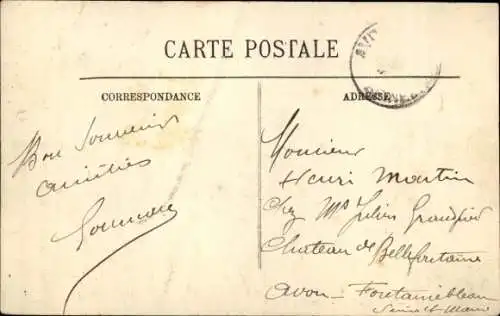 CARTE POSTALE
CORRESPONDANCE
ADRESSE
Bon Souvenir
amitiés
Monsieur
Henri Martin
Chez Mr Julien
Chateau de Bellefontaine
Avon - Fontainebleau
Seine et Marne